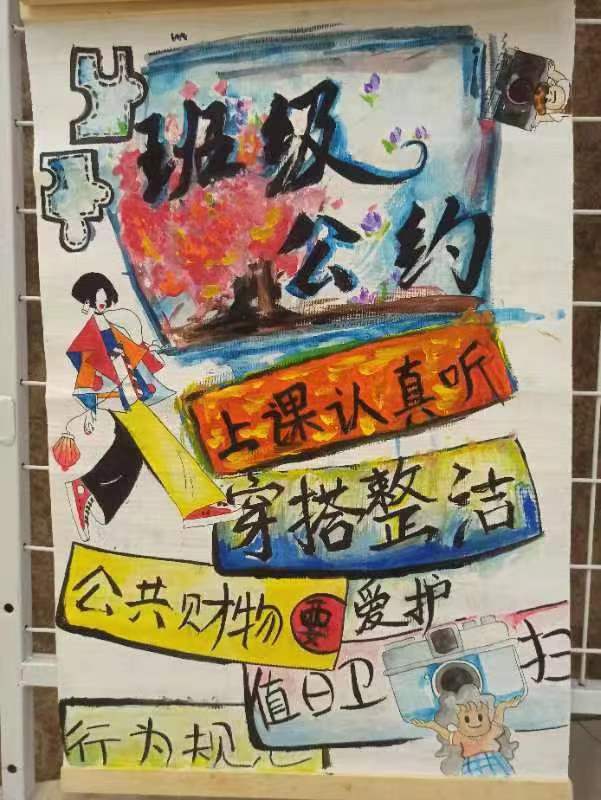 班级
公约
上课认真听
穿搭整洁
公共财物要爱护
值日卫 扫
行为规